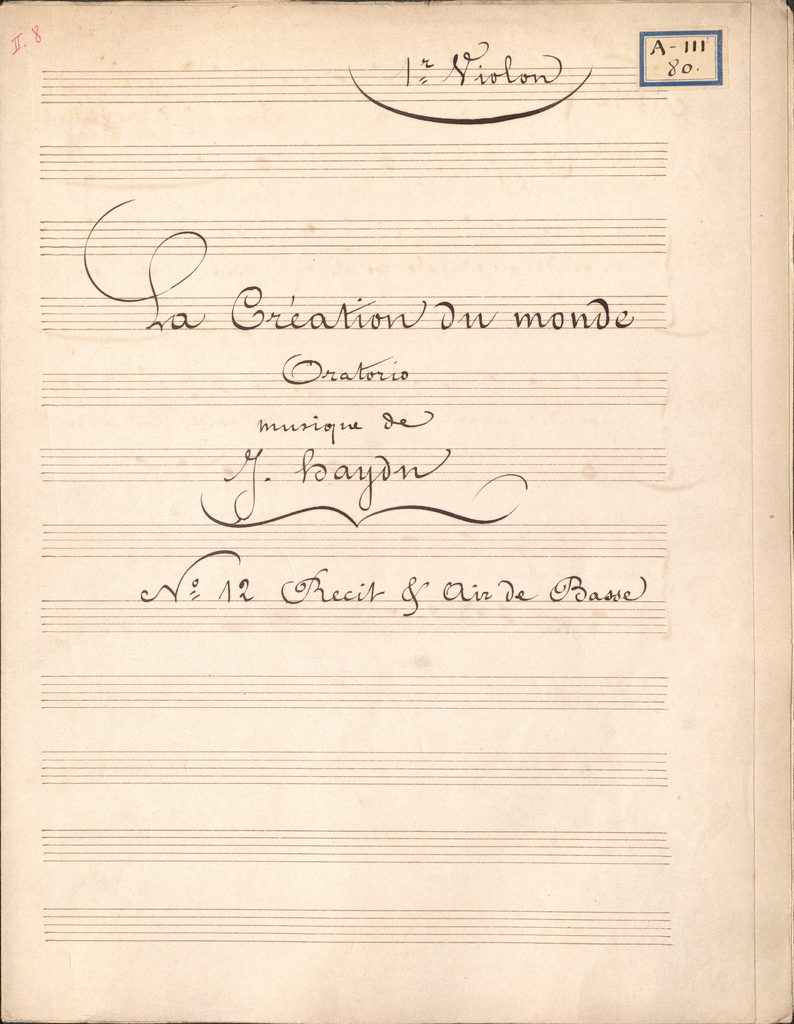 II. 8
1r Violon
A-III
80.
La Création du monde
Oratorio
musique de
J. Haydn
No 12 Recit & Air de Basse